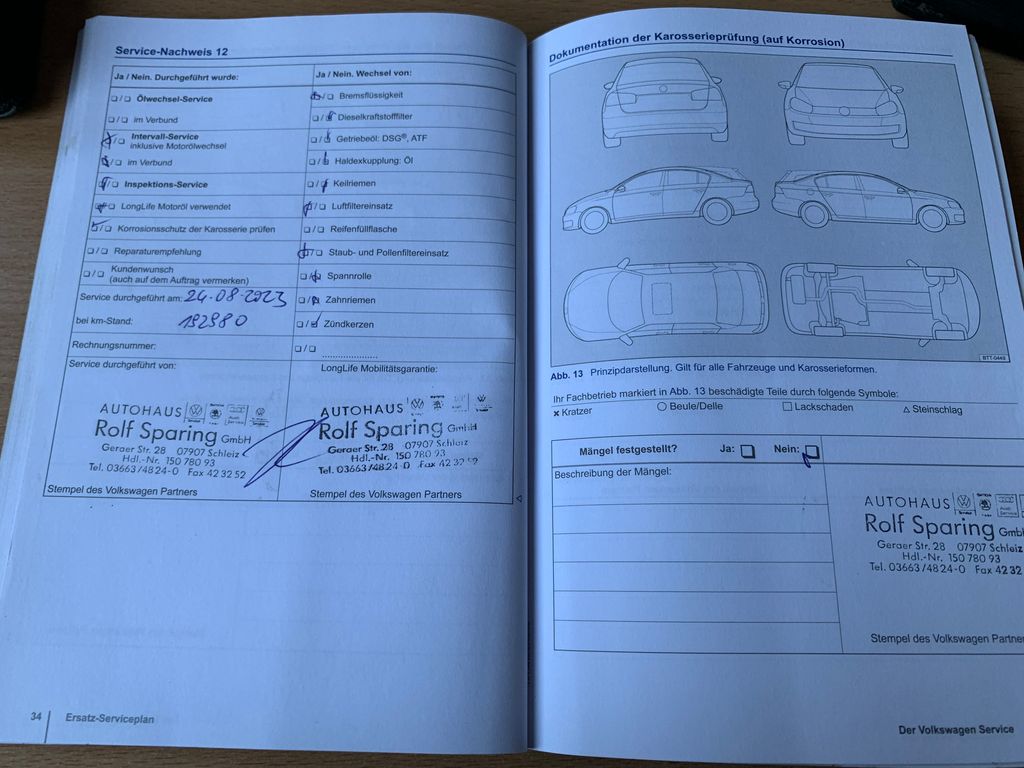 Service-Nachweis 12
Ja / Nein. Durchgeführt wurde:
Ja / Nein. Wechsel von:
❏ / ❏ Ölwechsel-Service
❏ / ❏ Bremsflüssigkeit
❏ / ❏ im Verbund
❏ / ❏ Dieselkraftstofffilter
❏ / ❏ Intervall-Service
inklusive Motorölwechsel
❏ / ❏ Getriebeöl: DSG®, ATF
❏ / ❏ im Verbund
❏ / ❏ Haldexkupplung: Öl
❏ / ❏ Inspektions-Service
❏ / ❏ Keilriemen
❏ / ❏ LongLife Motoröl verwendet
❏ / ❏ Luftfiltereinsatz
❏ / ❏ Korrosionsschutz der Karosserie prüfen
❏ / ❏ Reifenfüllflasche
❏ / ❏ Reparaturempfehlung
❏ / ❏ Staub- und Pollenfiltereinsatz
❏ / ❏ Kundenwunsch
(auch auf dem Auftrag vermerken)
❏ / ❏ Spannrolle
Service durchgeführt am: 24.08.2023
❏ / ❏ Zahnriemen
bei km-Stand: 192980
❏ / ❏ Zündkerzen
Rechnungsnummer:
❏ / ❏ ....................
Service durchgeführt von:
LongLife Mobilitätsgarantie:
AUTOHAUS
Rolf Sparing GmbH
Geraer Str. 28 07907 Schleiz
Hdl.-Nr. 150 780 93
Tel. 03663/48 24-0 Fax 42 32 52
Stempel des Volkswagen Partners
AUTOHAUS
Rolf Sparing GmbH
Geraer Str. 28 07907 Schleiz
Hdl.-Nr. 150 780 93
Tel. 03663/48 24-0 Fax 42 32 52
Stempel des Volkswagen Partners
34 Ersatz-Serviceplan
Dokumentation der Karosserieprüfung (auf Korrosion)
BTT-0449
Abb. 13 Prinzipdarstellung. Gilt für alle Fahrzeuge und Karosserieformen.
Ihr Fachbetrieb markiert in Abb. 13 beschädigte Teile durch folgende Symbole:
× Kratzer ○ Beule/Delle □ Lackschaden △ Steinschlag
Mängel festgestellt? Ja: ❏ Nein: ❏
Beschreibung der Mängel:
AUTOHAUS
Rolf Sparing GmbH
Geraer Str. 28 07907 Schleiz
Hdl.-Nr. 150 780 93
Tel. 03663/48 24-0 Fax 42 32
Stempel des Volkswagen Partner
Der Volkswagen Service